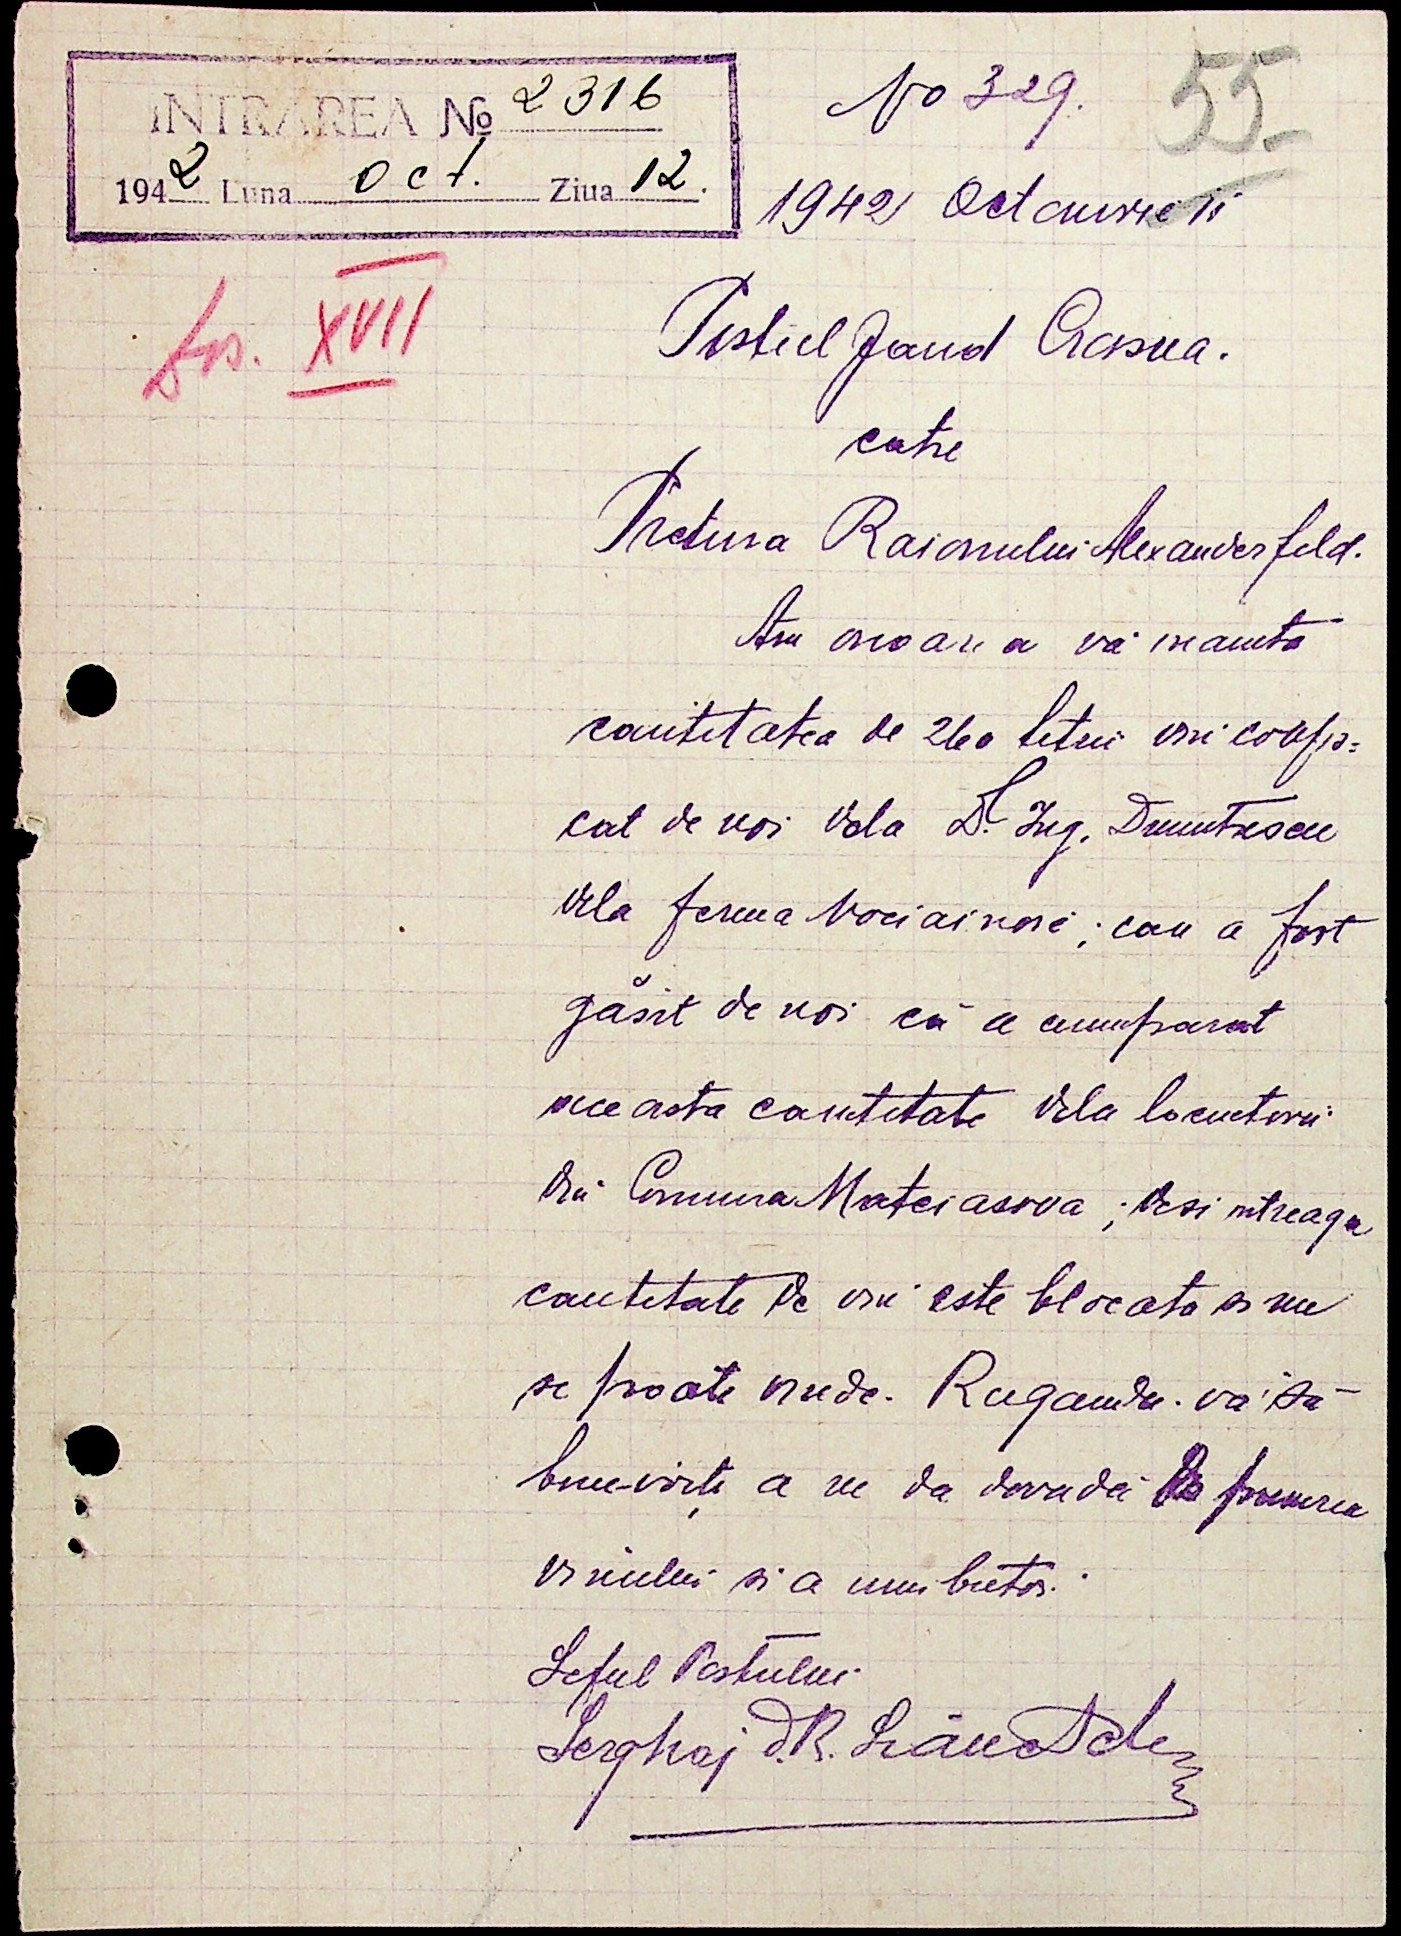 INTRAREA № 2316
1942 Luna Oct. Ziua 12.
No 329.
55.
1942 Octomvrie 11
Dos. XVII
Postul Jand Crasna.
catre
Pretura Raionului Alexanderfeld.
Am onoare a vă inainta
cantitatea de 260 litri vin confis=
cat de noi dela Dl. Ing. Dumitrescu
dela ferma ; care a fost
găsit de noi că a cumparat
aceasta cantitate dela locuitorii
din Comuna Mateiasova ; desi intreaga
cantitate de vin este blocata si nu
se poate vinde. Rugandu-va să
bine-voiți a ne da dovadă de primirea
vinului si a unui butoi.
Seful Postului
D.R.